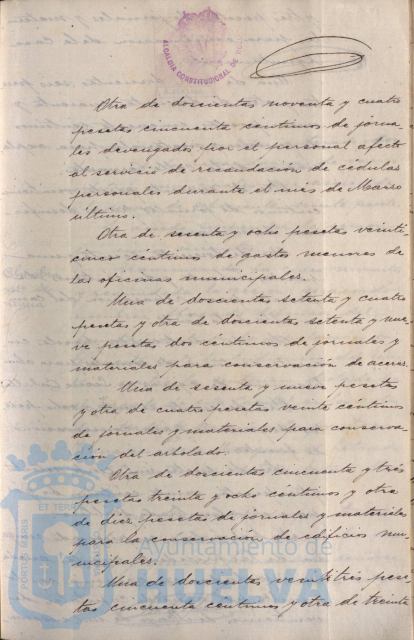 ALCALDIA CONSTITUCIONAL DE
Otra de doscientas noventa y cuatro
pesetas cincuenta céntimos de jorna-
les devengados por el personal afecto
al servicio de recaudación de cédulas
personales durante el mes de Marzo
último.
Otra de sesenta y ocho pesetas veinti-
cinco céntimos de gastos menores de
las oficinas municipales.
Una de doscientas setenta y cuatro
pesetas y otra de doscientas setenta y nue-
ve pesetas dos céntimos de jornales y
materiales para conservación de aceras.
Una de sesenta y nueve pesetas
y otra de cuatro pesetas veinte céntimos
de jornales y materiales para conserva-
ción del arbolado.
Otra de doscientas cincuenta y tres
pesetas treinta y ocho céntimos y otra
de diez pesetas de jornales y materiales
para la conservación de edificios mu-
nicipales.
Una de doscientas veintitrés pese-
tas cincuenta céntimos y otra de treinta
PORTUS MARIS ET TERRAE
Ayuntamiento de
HUELVA